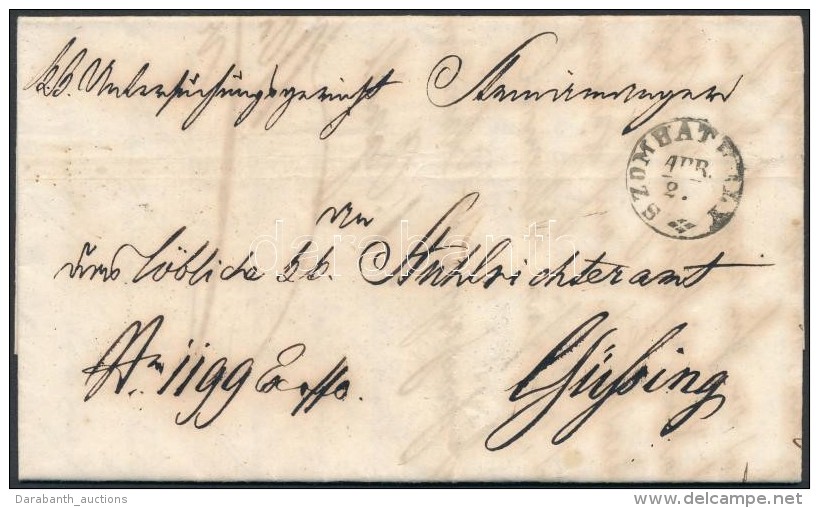 kk. Untersuchungsgericht Steinamanger
SZOMBATHELY
APR.
2.
An
das löbliche kk. Stuhlrichteramt
Nr. 1199 Ex offo.
Güssing
darabanth
Darabanth_auctions
www.delcampe.net